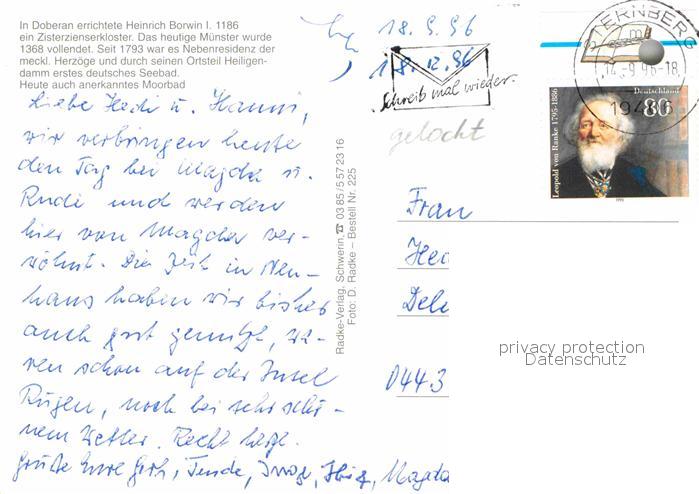 In Doberan errichtete Heinrich Borwin I. 1186
ein Zisterzienserkloster. Das heutige Münster wurde
1368 vollendet. Seit 1793 war es Nebenresidenz der
meckl. Herzöge und durch seinen Ortsteil Heiligen-
damm erstes deutsches Seebad.
Heute auch anerkanntes Moorbad
Liebe Hedi u. Hanni,
wir verbringen heute
den Tag bei Magda u.
Rudi und werden
hier von Magda ver-
wöhnt. Die Zeit in Neu-
haus haben wir bisher
auch gut genutzt, wa-
ren schon auf der Insel
Rügen, noch bei sehr schö-
nem Wetter. Recht herzl.
Grüße Eure Magda
Radke-Verlag, Schwerin, ☎ 03 85 / 5 57 23 16
Foto: D. Radke – Bestell Nr. 225
18.9.96
18.12.96
Schreib mal wieder.
gelocht
STERNBERG
14.-9.96-18
19406
Deutschland
80
Leopold von Ranke 1795-1886
1995
Frau
Hed
Dele
0443
privacy protection
Datenschutz